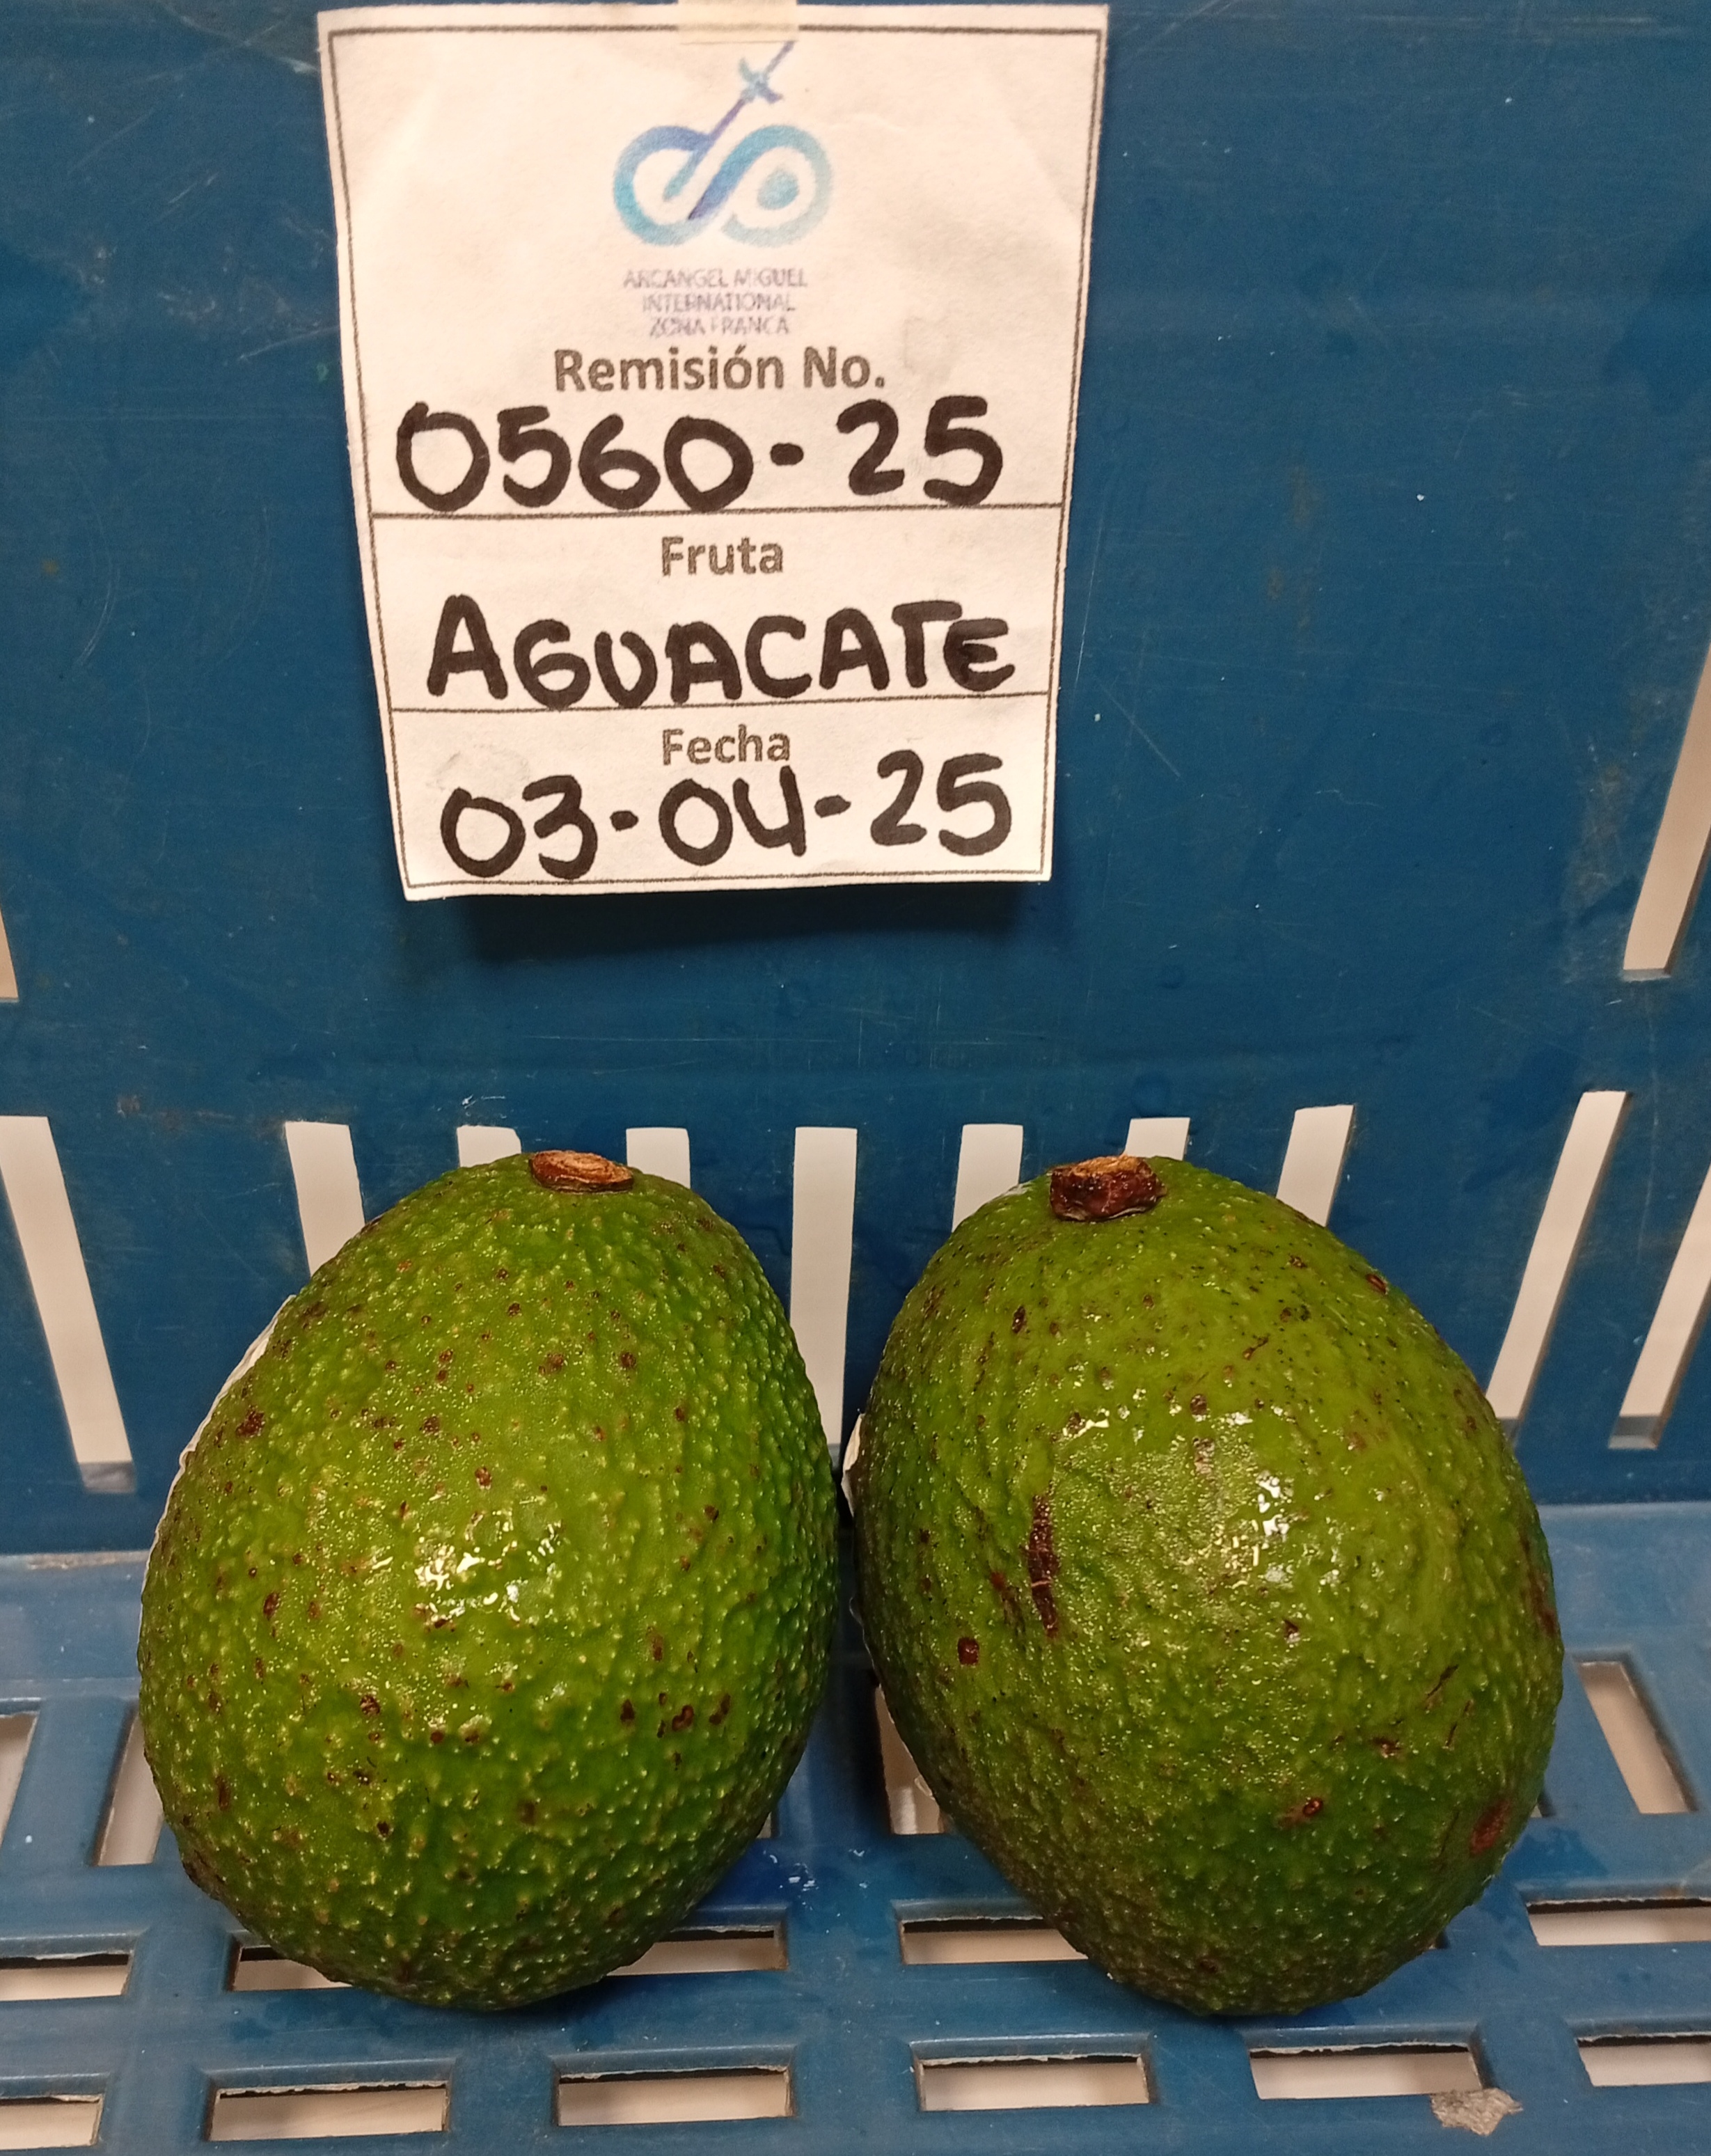 ARCANGEL MIGUEL
INTERNATIONAL
ZONA FRANCA
Remisión No.
0560-25
Fruta
AGUACATE
Fecha
03-04-25